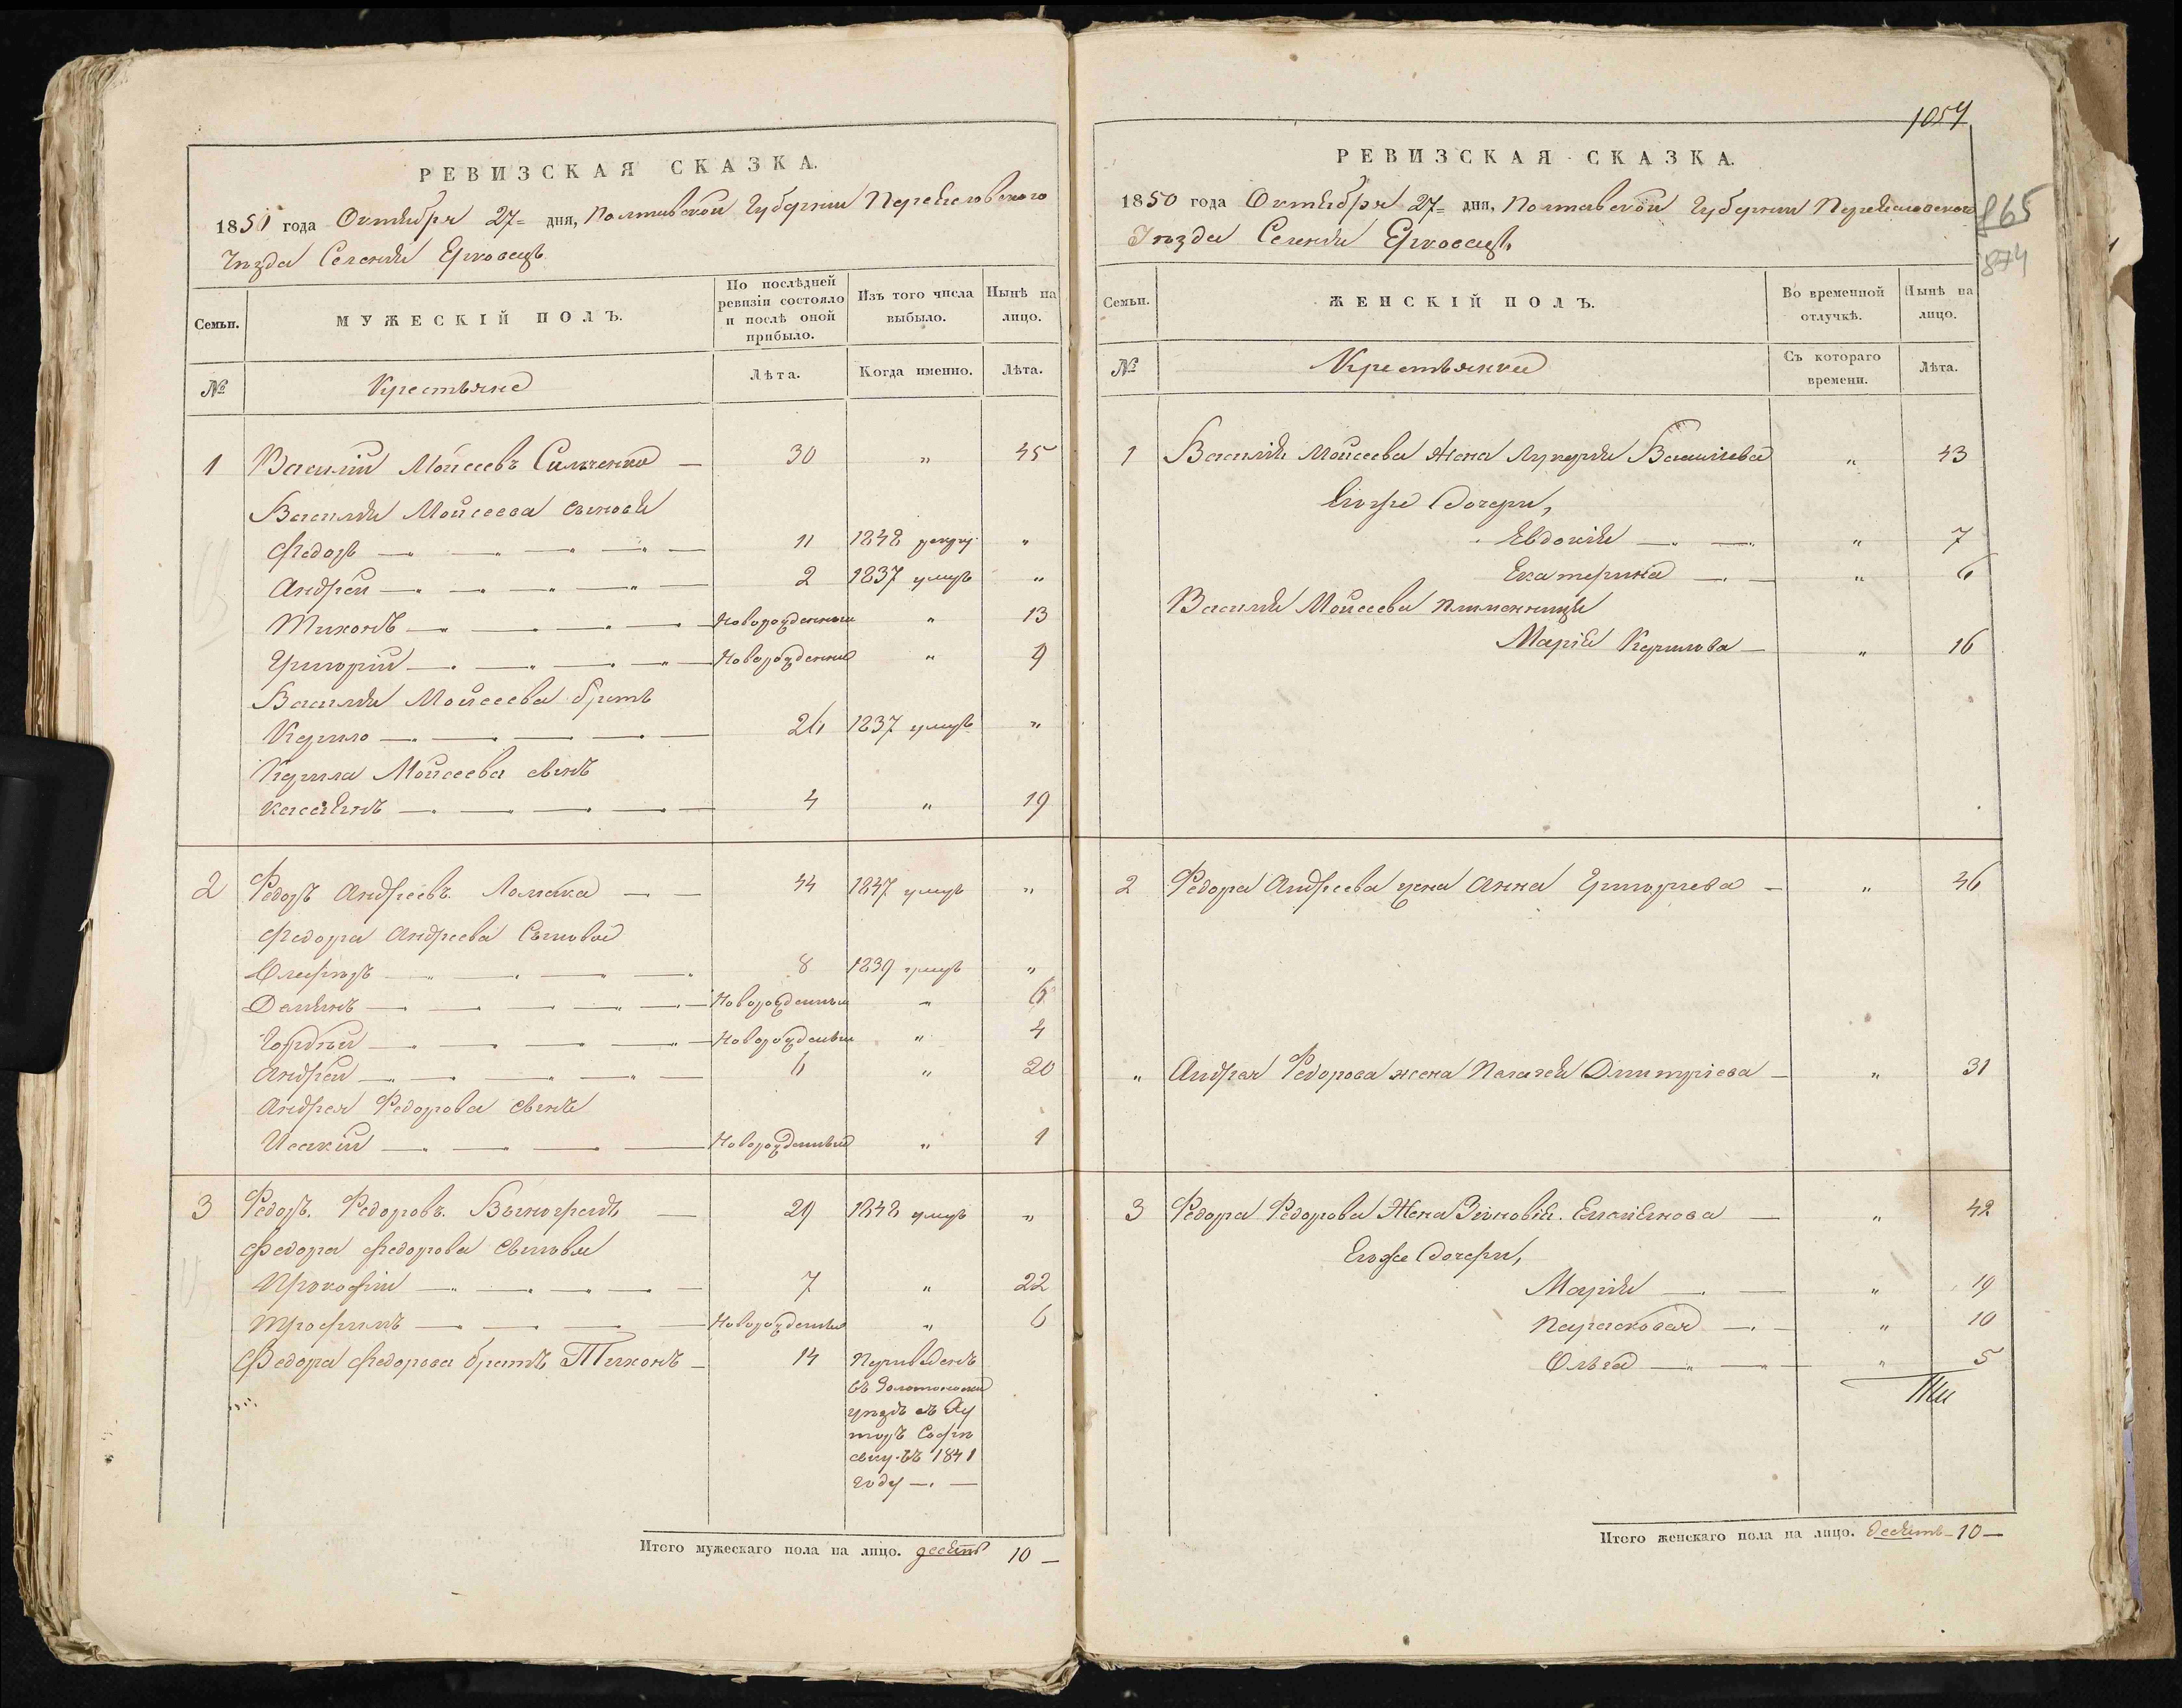 РЕВИЗСКАЯ СКАЗКА.
1850 года Октября 27 = дня, Полтавской Губерніи Переясловского
Уѣзда Селенія Ерковецъ
Семьи.
МУЖЕСКІЙ ПОЛЪ.
По послѣдней ревизіи состояло и послѣ оной прибыло.
Изъ того числа выбыло.
Нынѣ на лицо.
№ Крестьяне Лѣта. Когда именно. Лѣта.
1 Василій Моисеевъ Сильченко — 30 " 45
Василія Моисеева сыновья
Федоръ 11 1848 рекру. "
Андрей 2 1837 умеръ "
Тихонъ Новорожденный " 13
Григорій Новорожденный " 9
Василія Моисеева братъ
Кирило 26 1837 умеръ "
Кирила Моисеева сынъ
Касіянъ 4 " 19
2 Федоръ Андреевъ Ломака 44 1847 умеръ "
Федора Андреева Сыновья
8 1839 умеръ "
Демянъ Новорожденный " 6
Гордѣй Новорожденный " 4
Андрей 6 " 20
Андрея Федорова сынъ
Исакій Новорожденный " 1
3 Федоръ Федоровъ Виноградъ — 29 1848 умеръ "
Федора Федорова Сыновья
Прокофій 7 " 22
Трофимъ Новорожденный " 6
Федора Федорова братъ Тихонъ — 14 Переведенъ
въ Золотоношскій
уѣздъ въ Ху
торъ Софі
евку въ 1841
году —
Итого мужескаго пола на лицо. десять 10 —
1054
РЕВИЗСКАЯ СКАЗКА.
1850 года Октября 27 = дня, Полтавской Губерніи Переясловского
865
Уѣзда Селенія Ерковецъ
874
Семьи.
ЖЕНСКІЙ ПОЛЪ.
Во временной отлучкѣ.
Нынѣ на лицо.
№ Крестьянки Съ котораго времени. Лѣта.
1 Василія Моисеева Жена Лукерія Васильева " 43
Егоже Дочери,
Евдокія " 7
Екатерина " 6
Василія Моисеева племенница
Марія Кирилова — " 16
2 Федора Андреева жена Анна Григорьева — " 46
" Андрея Федорова жена Пелагея Дмитріева — " 31
3 Федора Федорова Жена Зиновія Емельянова — " 42
Егоже Дочери,
Марія " 19
Парасковья " 10
Ольга " 5
Итого женскаго пола на лицо. десять — 10 —